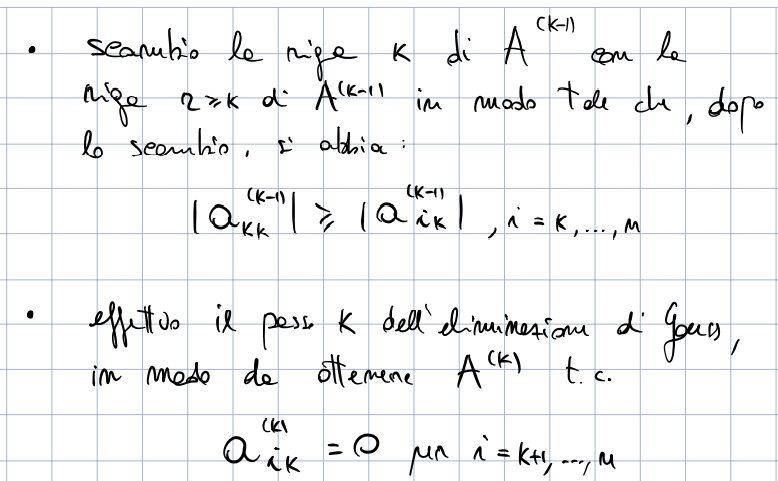 • scambio la riga K di A^(K-1) con la
riga r ≥ K di A^(K-1) in modo tale che, dopo
lo scambio, si abbia:
|a_KK^(K-1)| ≥ |a_iK^(K-1)|, i = K, ..., n
• effettuo il passo K dell'eliminazione di Gauss,
in modo da ottenere A^(K) t.c.
a_iK^(K) = 0 per i = K+1, ..., n